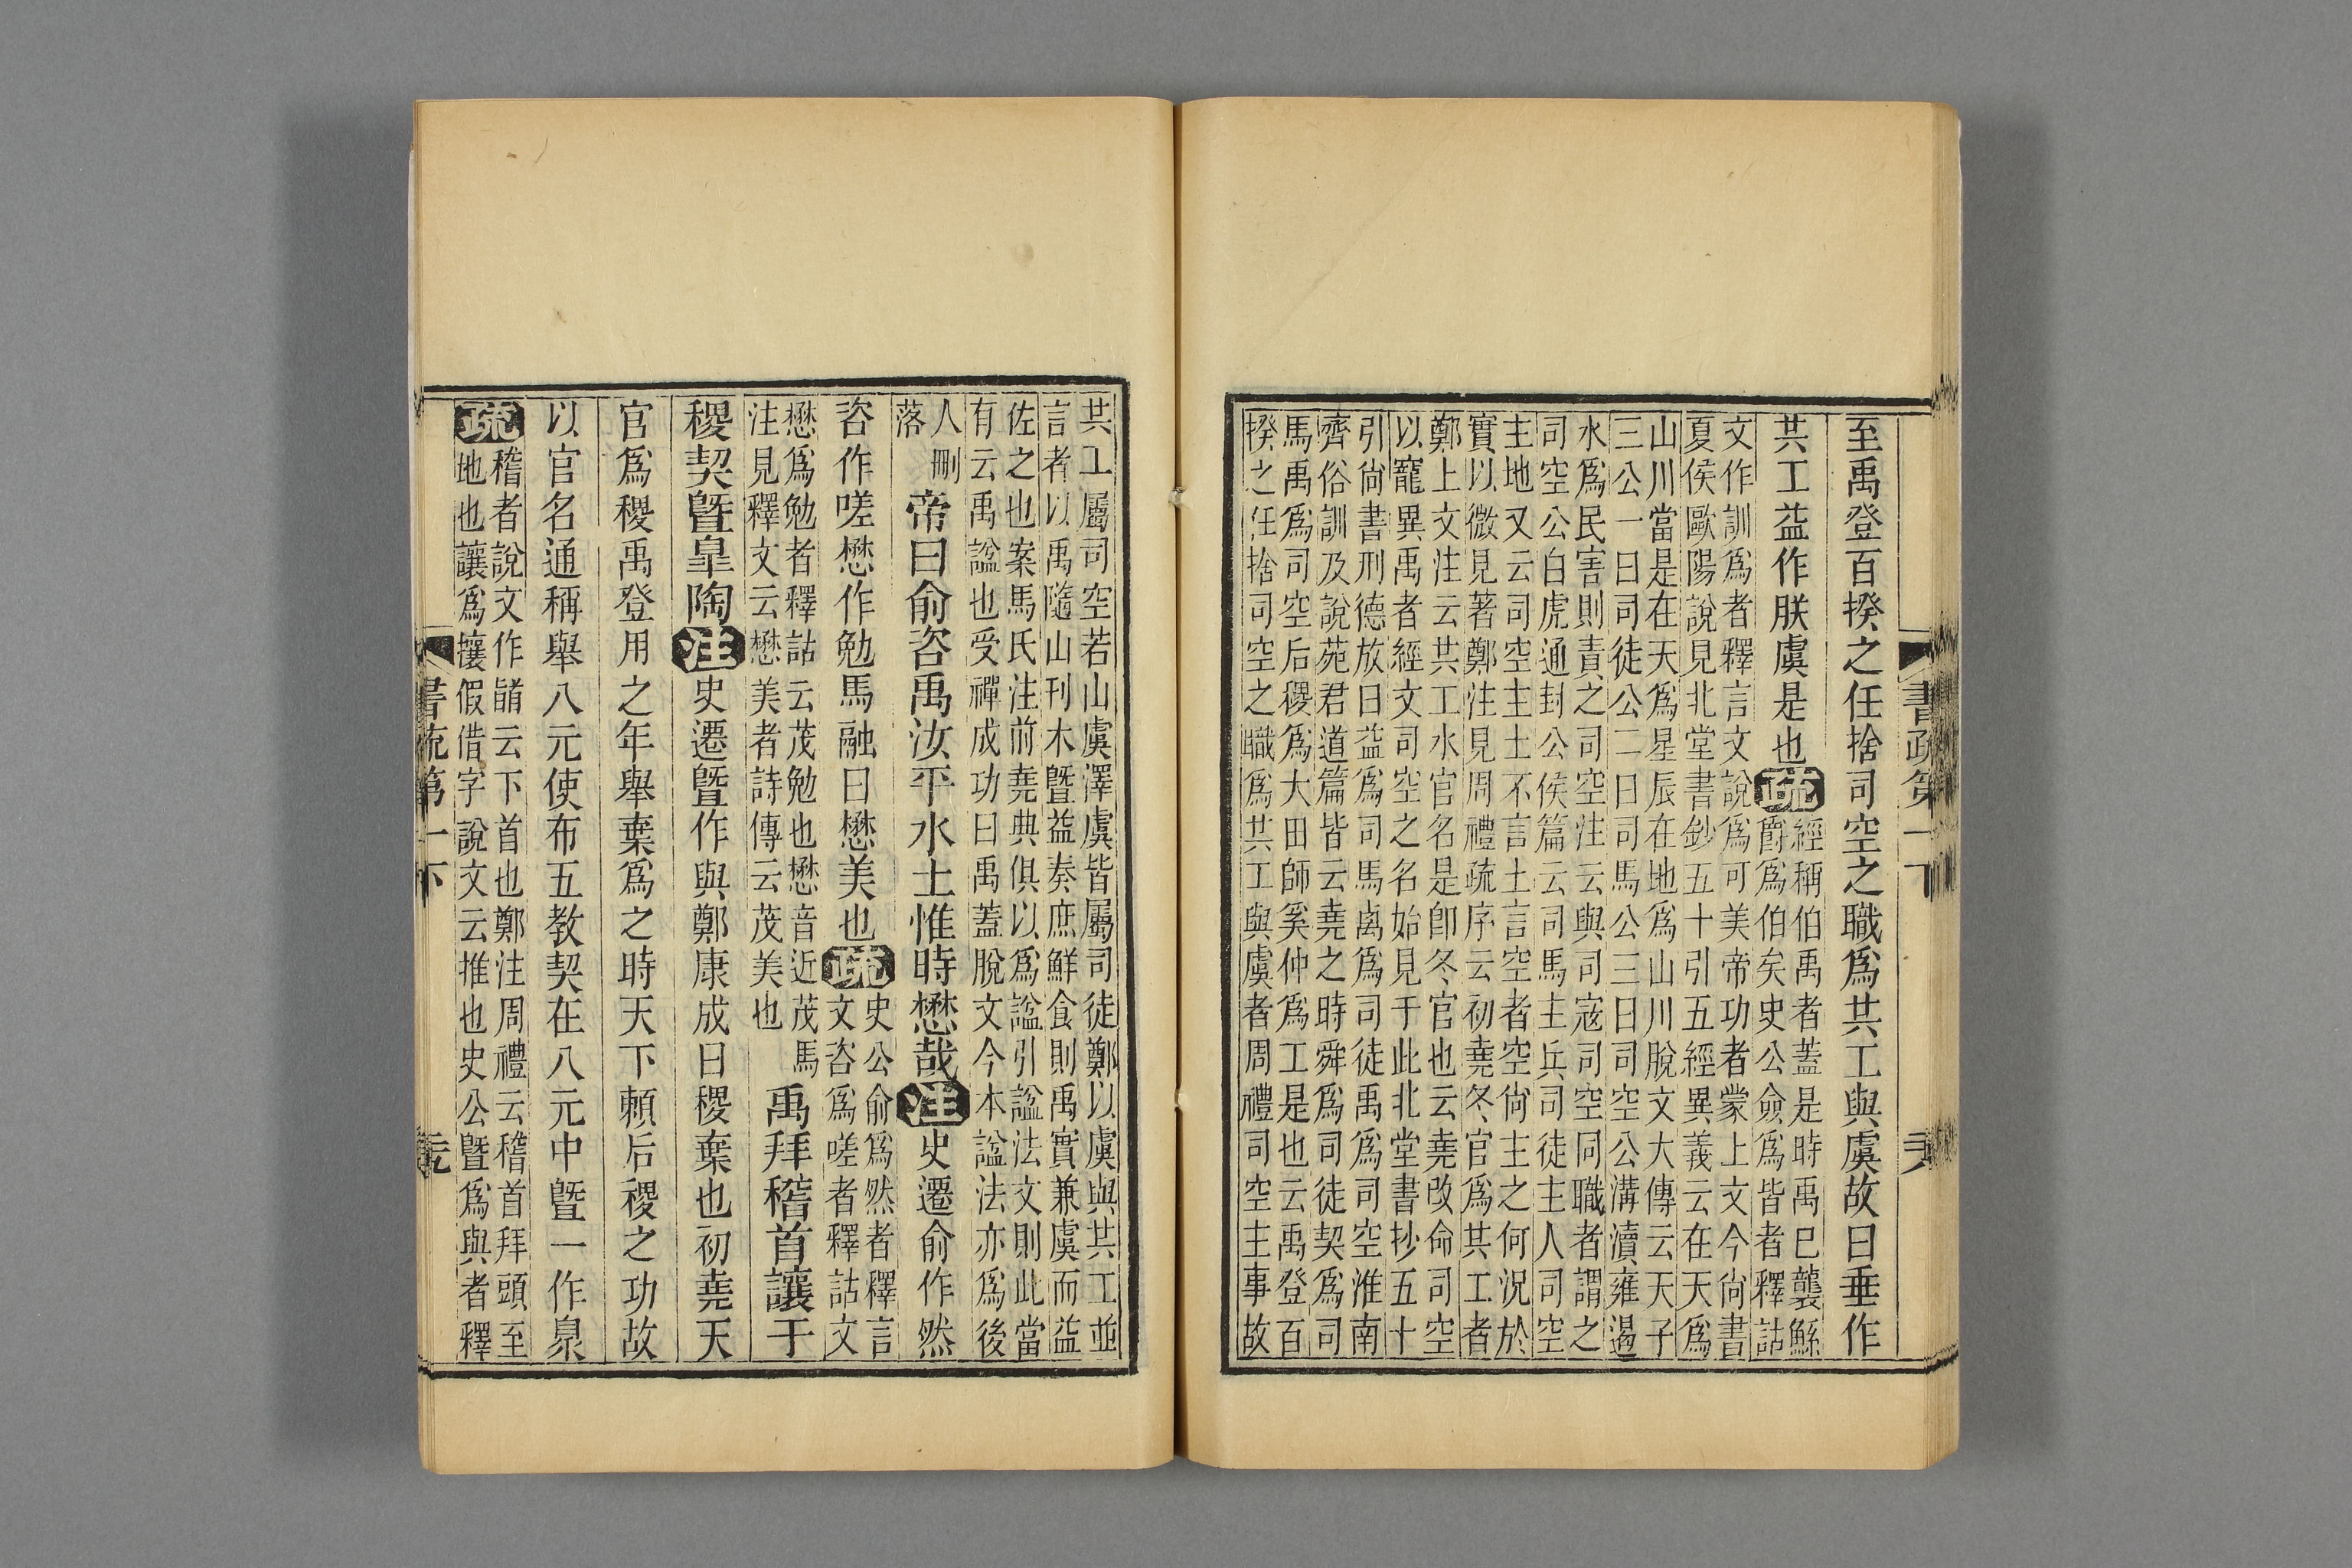 至禹登百揆之任捨司空之職爲共工與虞故曰垂作
共工益作朕虞是也疏
經稱伯禹者蓋是時禹已襲鯀
爵爲伯矣史公僉爲皆者釋詁
文作訓爲者釋言文說爲可美帝功者蒙上文今尚書
夏侯歐陽說見北堂書鈔五十引五經異義云在天爲
山川當是在天爲星辰在地爲山川脫文大傳云天子
三公一曰司徒公二曰司馬公三曰司空公溝瀆雍遏
水爲民害則責之司空注云與司寇司空同職者謂之
司空公白虎通封公侯篇云司馬主兵司徒主人司空
主地又云司空主土不言土言空者空尚主之何況於
實以微見著鄭注見周禮疏序云初堯冬官爲共工者
鄭上文注云共工水官名是卽冬官也云堯改命司空
以寵異禹者經文司空之名始見于此北堂書抄五十
引尚書刑德放曰益爲司馬禼爲司徒禹爲司空淮南
齊俗訓及說苑君道篇皆云堯之時舜爲司徒契爲司
馬禹爲司空后稷爲大田師奚仲爲工是也云禹登百
揆之任捨司空之職爲共工與虞者周禮司空主事故
書疏第一下
共工屬司空若山虞澤虞皆屬司徒鄭以虞與共工並
言者以禹隨山刊木曁益奏庶鮮食則禹實兼虞而益
佐之也案馬氏注前堯典俱以爲諡引諡法文則此當
有云禹諡也受禪成功曰禹蓋脫文今本諡法亦爲後
人刪
落
帝曰俞咨禹汝平水土惟時懋哉注史遷俞作然
咨作嗟懋作勉馬融曰懋美也疏
史公俞爲然者釋言
文咨爲嗟者釋詁文
懋爲勉者釋詁云茂勉也懋音近茂馬
注見釋文云懋美者詩傳云茂美也
禹拜稽首讓于
稷契曁皐陶注史遷曁作與鄭康成曰稷棄也初堯天
官爲稷禹登用之年舉棄爲之時天下賴后稷之功故
以官名通稱舉八元使布五教契在八元中曁一作臮
疏
稽者說文作䭫云下首也鄭注周禮云稽首拜頭至
地也讓爲攘假借字說文云推也史公曁爲與者釋
書疏第一下